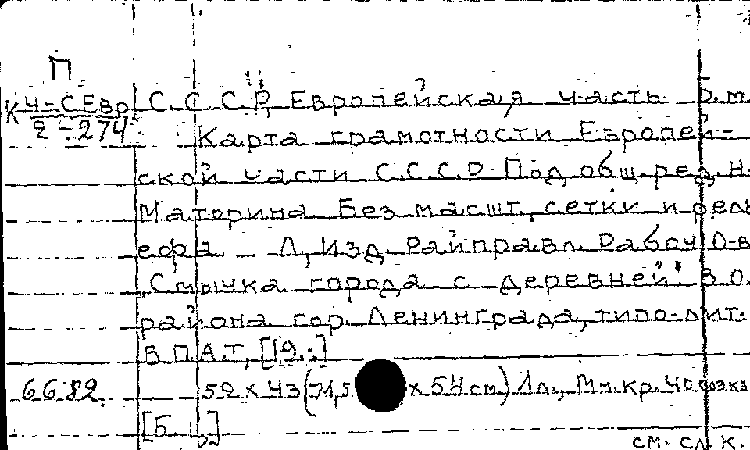 П
К Ч-С Евр
2-274
С.С.С.Р. Европейская часть б.м.
Карта грамотности Европей-
ской части С.С.С.Р. Под общ. ред. Н.
Маторина. Без масшт., сетки и рель
ефа - Л, Изд. Райправл. Рабоч. О-в
"Смычка города с деревней" В.О.
района гор. Ленинграда, типо-лит.
В.П.А.Т, [19..]
6682. 52 x 43 (71,5 x 54 см.) 1 л., Мн. кр.
[Б. ц.]
см. сл. к.